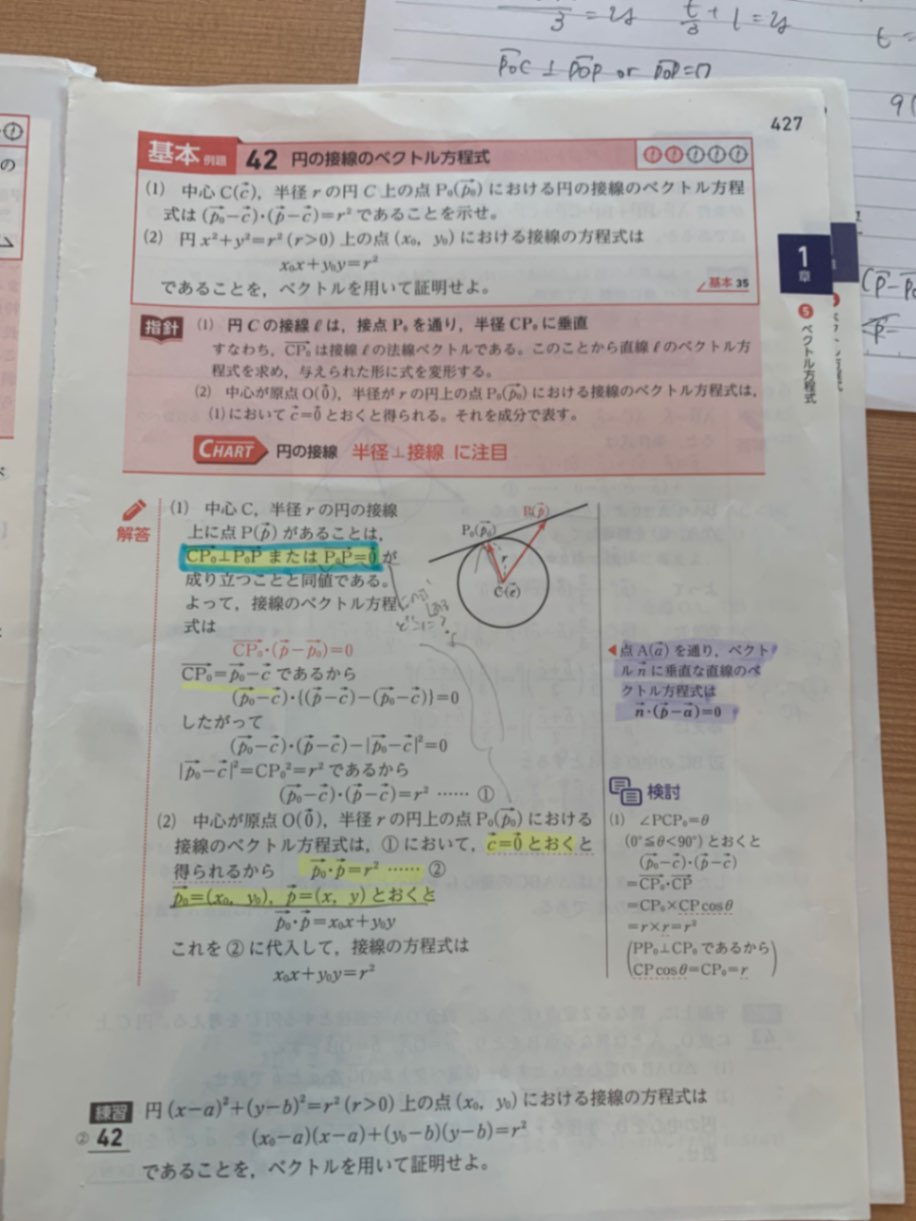 427
基本 例題 42 円の接線のベクトル方程式
(1) 中心 C(c⃗), 半径 r の円 C 上の点 P₀(p₀⃗) における円の接線のベクトル方程
式は (p₀⃗−c⃗)・(p⃗−c⃗)=r² であることを示せ。
(2) 円 x²+y²=r² (r>0) 上の点 (x₀, y₀) における接線の方程式は
x₀x+y₀y=r²
であることを, ベクトルを用いて証明せよ。
基本 35
指針 (1) 円 C の接線 ℓ は, 接点 P₀ を通り, 半径 CP₀ に垂直
すなわち, CP₀⃗ は接線 ℓ の法線ベクトルである。このことから直線 ℓ のベクトル方
程式を求め, 与えられた形に式を変形する。
(2) 中心が原点 O(0⃗), 半径が r の円上の点 P₀(p₀⃗) における接線のベクトル方程式は,
(1) において c⃗=0⃗ とおくと得られる。それを成分で表す。
CHART 円の接線 半径⊥接線 に注目
1
章
5
ベクトル方程式
解答
(1) 中心 C, 半径 r の円の接線
上に点 P(p⃗) があることは,
CP₀⃗⊥P₀P⃗ または P₀P⃗=0⃗ が
成り立つことと同値である。
よって, 接線のベクトル方程
式は
CP₀⃗・(p⃗−p₀⃗)=0
CP₀⃗=p₀⃗−c⃗ であるから
(p₀⃗−c⃗)・{(p⃗−c⃗)−(p₀⃗−c⃗)}=0
したがって
(p₀⃗−c⃗)・(p⃗−c⃗)−|p₀⃗−c⃗|²=0
|p₀⃗−c⃗|²=CP₀²=r² であるから
(p₀⃗−c⃗)・(p⃗−c⃗)=r² …… ①
(2) 中心が原点 O(0⃗), 半径 r の円上の点 P₀(p₀⃗) における
接線のベクトル方程式は, ① において, c⃗=0⃗ とおくと
得られるから p₀⃗・p⃗=r² …… ②
p₀⃗=(x₀, y₀), p⃗=(x, y) とおくと
p₀⃗・p⃗=x₀x+y₀y
これを ② に代入して, 接線の方程式は
x₀x+y₀y=r²
P₀(p₀⃗)
P(p⃗)
r
C(c⃗)
◀点 A(a⃗) を通り, ベクト
ル n⃗ に垂直な直線のベ
クトル方程式は
n⃗・(p⃗−a⃗)=0
検討
(1) ∠PCP₀=θ
(0°≦θ<90°) とおくと
(p₀⃗−c⃗)・(p⃗−c⃗)
=CP₀⃗・CP⃗
=CP₀×CPcosθ
=r×r=r²
(PP₀⊥CP₀ であるから
CPcosθ=CP₀=r)
練習 円 (x−a)²+(y−b)²=r² (r>0) 上の点 (x₀, y₀) における接線の方程式は
② 42 (x₀−a)(x−a)+(y₀−b)(y−b)=r²
であることを, ベクトルを用いて証明せよ。
3 =y t/3 +1=y
t=
P₀C⃗ ⊥ P₀P⃗ or P₀P⃗=0